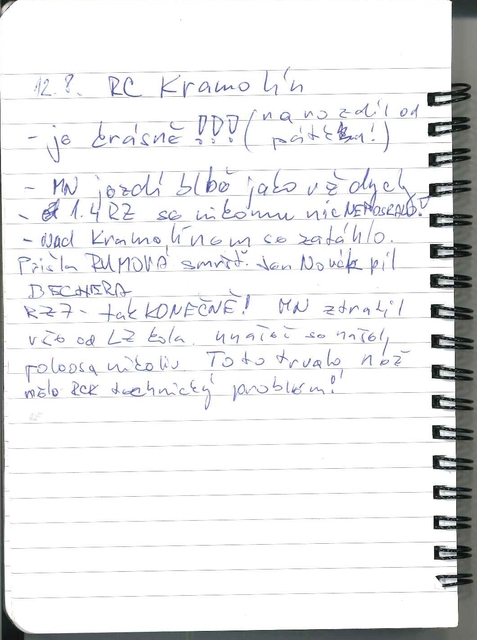 12.8. RC Kramolín
- je krásně !!! (na rozdíl od
pátku!)
- MN jezdí blbě jako vždycky
- 1.4 RZ se nikomu nic NEPOSRALO!
- Nad Kramolínem se zatáhlo.
Přišla RUMOVÁ smršť. Jan Novák pil
BECHERA
RZ7 - tak KONEČNĚ! MN ztratil
vše od LZ kola. unašeč se našel,
poloosa nikoliv. Toto trvalo, než
mělo RCK technický problém!